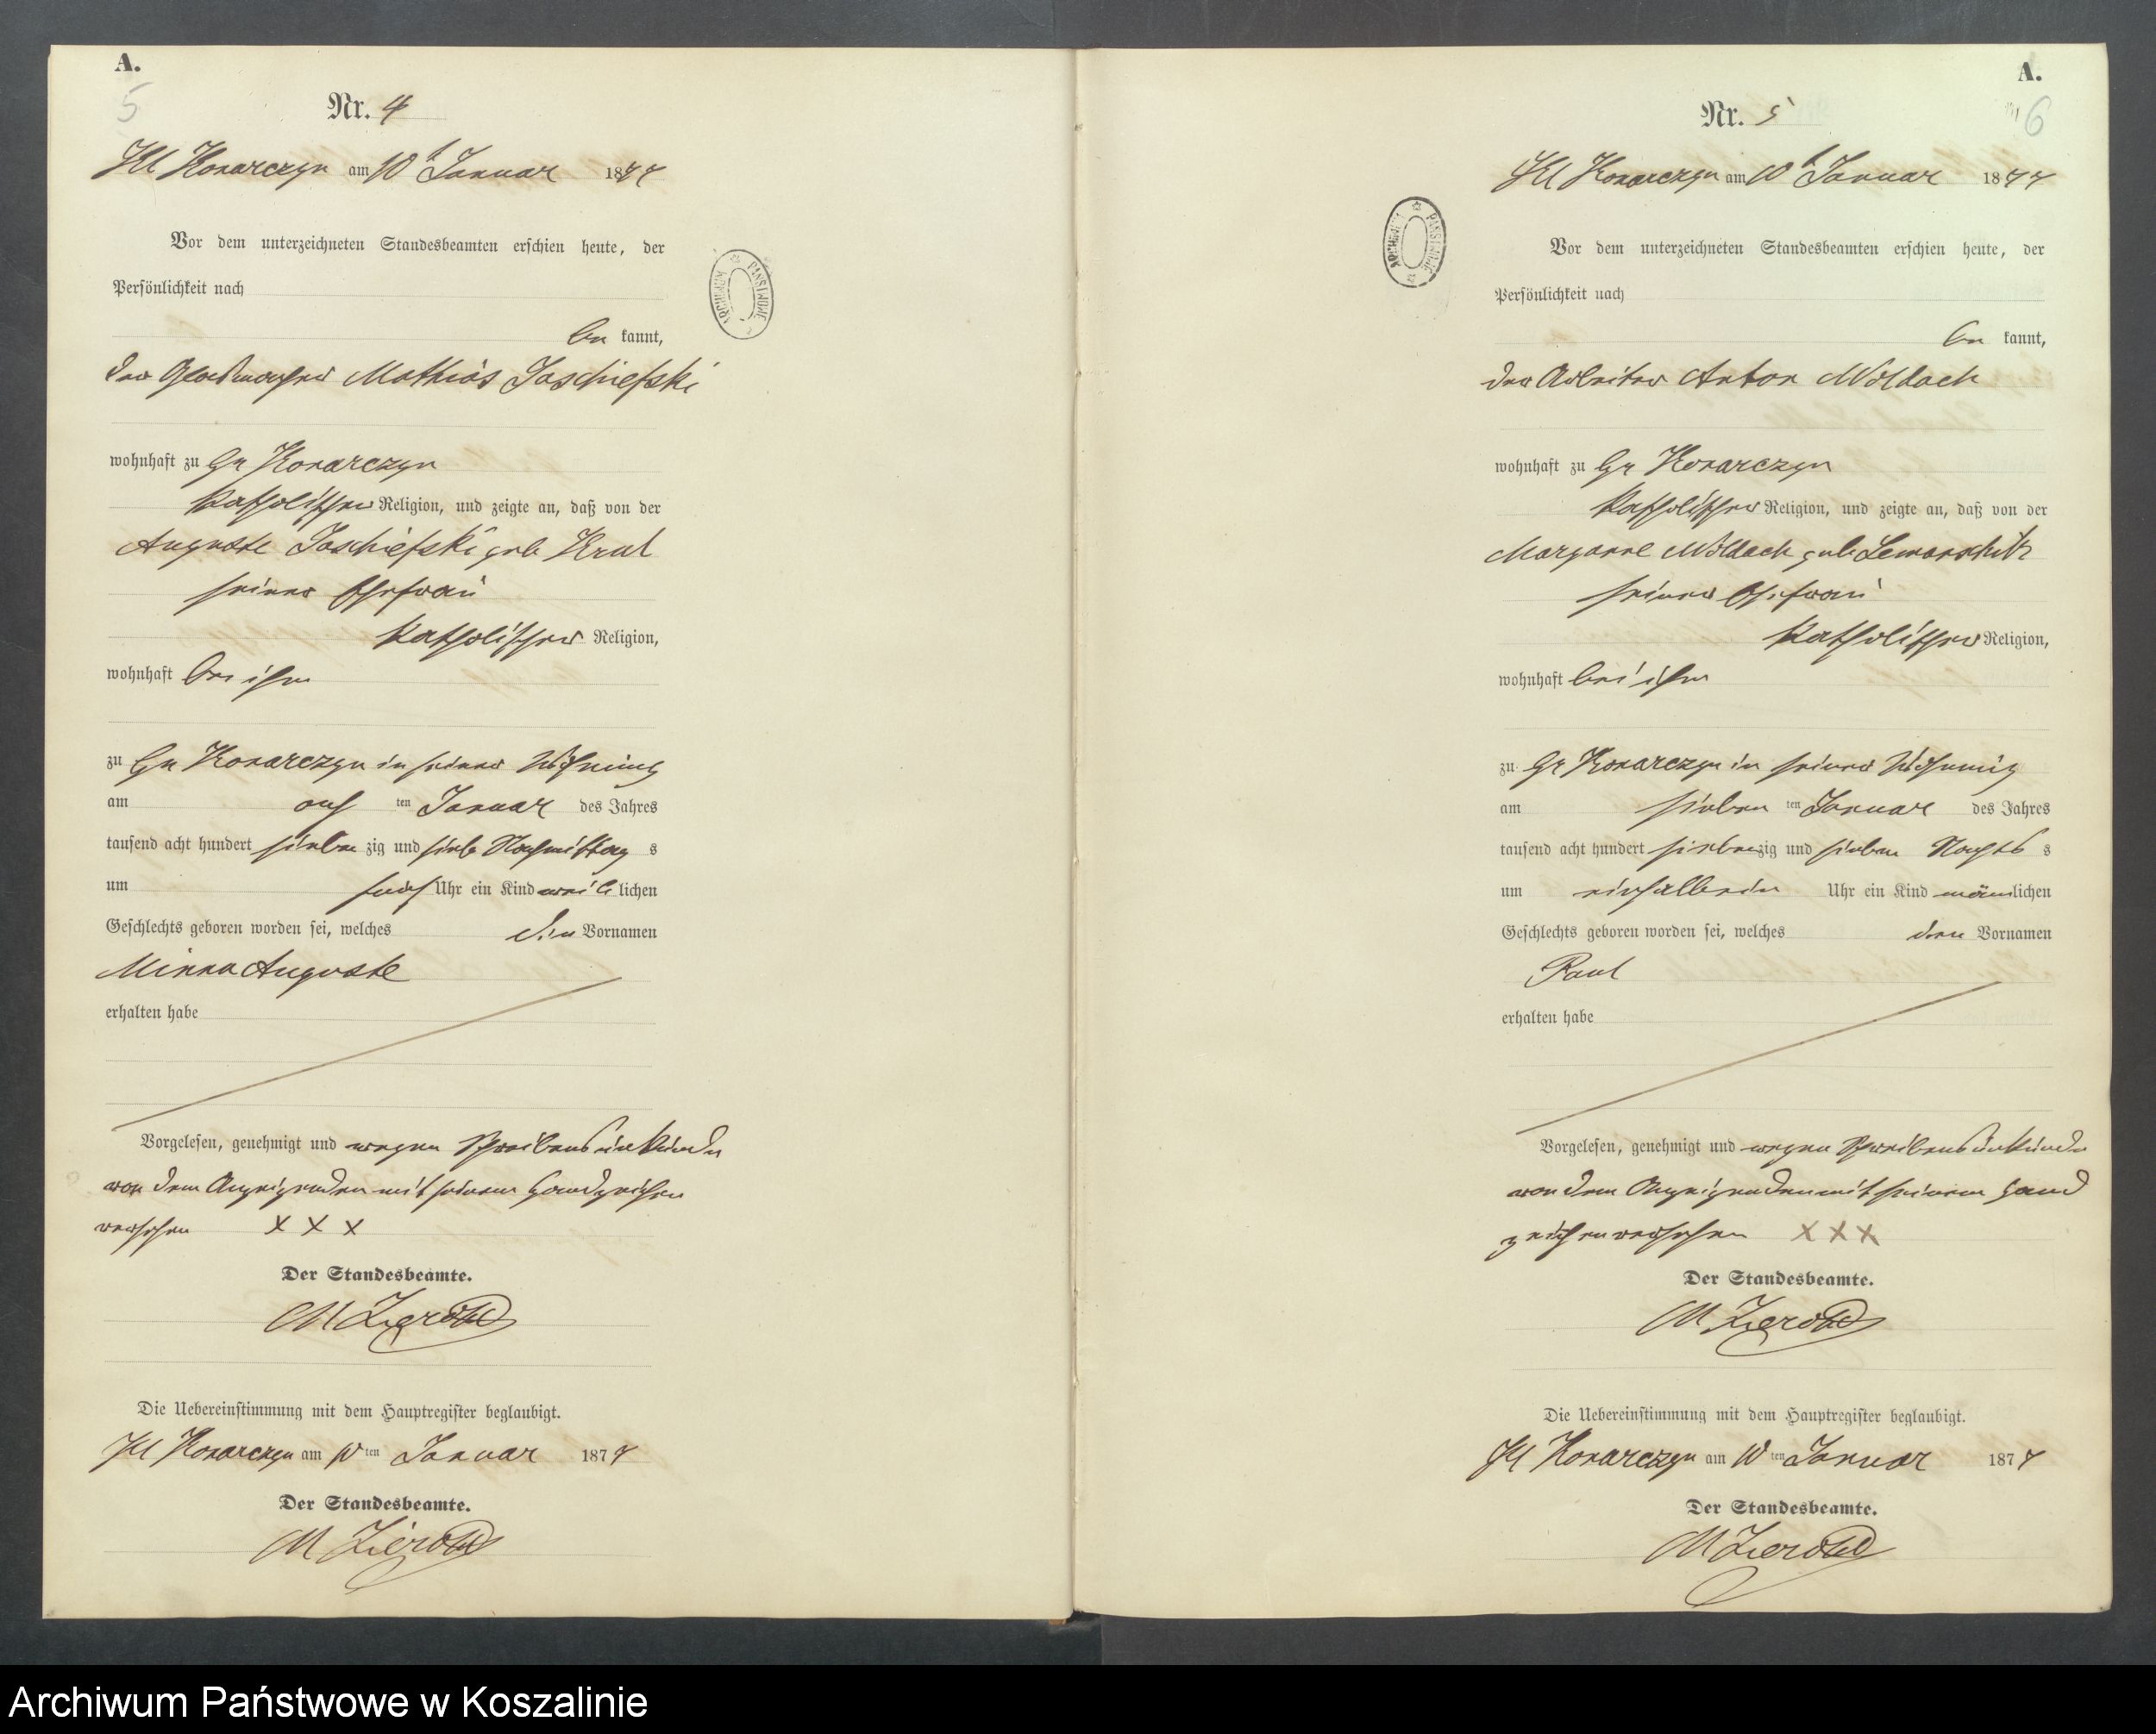 A.
5
Nr. 4
Kl Konarczyn am 10t Januar 1877
Vor dem unterzeichneten Standesbeamten erschien heute, der
Persönlichkeit nach
be kannt,
der Mathias Jaschiefski
wohnhaft zu Gr Konarczyn
katholischer Religion, und zeigte an, daß von der
Auguste Jaschiefski geb Krul
seiner Ehefrau
katholischer Religion,
wohnhaft bei ihm
zu Gr Konarczyn in seiner Wohnung
am ten Januar des Jahres
tausend acht hundert sieben zig und sieb Nachmittag s
um fünf Uhr ein Kind weib lichen
Geschlechts geboren worden sei, welches die Vornamen
Minna Auguste
erhalten habe
Vorgelesen, genehmigt und wegen Schreibensunkunde
von dem Anzeigenden mit seinem Handzeichen
versehen X X X
Der Standesbeamte.
M
Die Uebereinstimmung mit dem Hauptregister beglaubigt.
Kl Konarczyn am 10 ten Januar 1877
Der Standesbeamte.
M
A.
6
Nr. 5
Kl Konarczyn am 10t Januar 1877
Vor dem unterzeichneten Standesbeamten erschien heute, der
Persönlichkeit nach
be kannt,
der Arbeiter Anton Moldach
wohnhaft zu Gr Konarczyn
katholischer Religion, und zeigte an, daß von der
Maryanne Moldach geb
seiner Ehefrau
katholischer Religion,
wohnhaft bei ihm
zu Gr Konarczyn in seiner Wohnung
am sieben ten Januar des Jahres
tausend acht hundert siebenzig und sieben Nachts s
um einhalb ein Uhr ein Kind männlichen
Geschlechts geboren worden sei, welches den Vornamen
Paul
erhalten habe
Vorgelesen, genehmigt und wegen Schreibensunkunde
von dem Anzeigenden mit seinem Hand
zeichen versehen X X X
Der Standesbeamte.
M
Die Uebereinstimmung mit dem Hauptregister beglaubigt.
Kl Konarczyn am 10 ten Januar 1877
Der Standesbeamte.
M
ARCHIWUM PAŃSTWOWE
ARCHIWUM PAŃSTWOWE
Archiwum Państwowe w Koszalinie